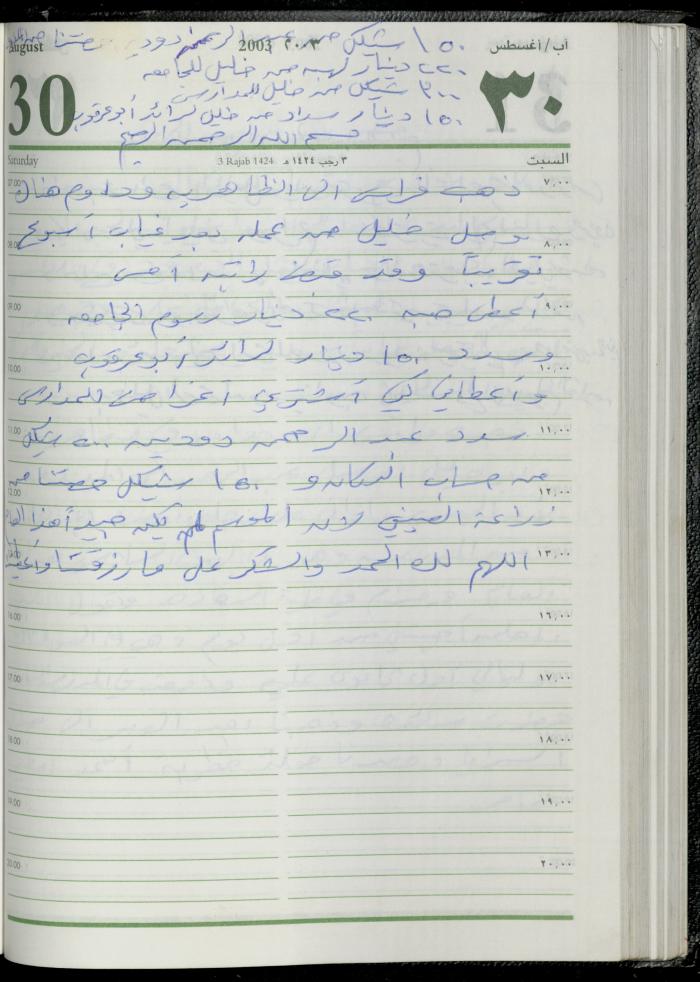 ١٥٠ شيكل من عبد الرحمن دودين حصتنا من
٢٢٠ دينار لهبه من خليل للجامعه
٣٠٠ شيكل من خليل للمدارس
١٥٠ دينار سداد من خليل لرائد أبو عرقوب
بسم الله الرحمن الرحيم
August 30 2003 ٢٠٠٣ آب/أغسطس ٣٠
Saturday 3 Rajab 1424 ٣ رجب ١٤٢٤ هـ السبت
07.00 ذهب فراس الى الظاهريه وداوم هناك ٧,٠٠
08.00 وصل خليل من عمله بعد غياب أسبوع ٨,٠٠
تقريباً وقد قبض راتبه أمس
09.00 أعطى هبه ٢٢٠ دينار رسوم الجامعه ٩,٠٠
10.00 وسدد ١٥٠ دينار لرائد أبو عرقوب ١٠,٠٠
وأعطاني كي أشتري أغراض للمدارس
11.00 سدد عبد الرحمن دودين ٥٠٠ شيكل ١١,٠٠
12.00 من حساب الدكان و ١٥٠ شيكل حصتنا من ١٢,٠٠
زراعة الصيفي لان الموسم لم يكن جيداً هذا العام
اللهم لك الحمد والشكر على ما رزقتنا ١٣,٠٠
16.00 ١٦,٠٠
17.00 ١٧,٠٠
18.00 ١٨,٠٠
19.00 ١٩,٠٠
20.00 ٢٠,٠٠